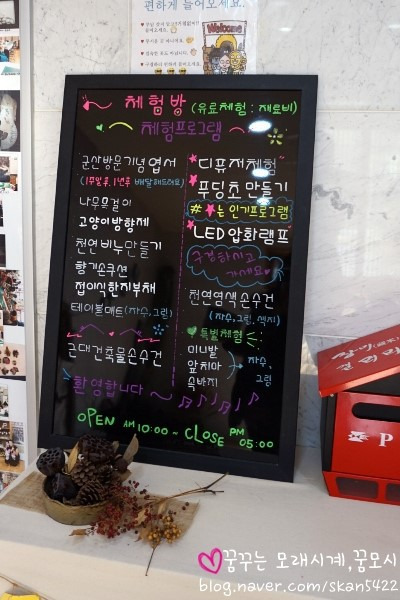 편하게 들어오세요.
Welcome
체험방 (유료체험 : 재료비)
체험프로그램
군산방문기념 엽서
(1주일후, 1년후 배달해드려요)
나무목걸이
고양이방향제
천연비누만들기
향기손쿠션
접이식한지부채
테이블매트 (자수,그림)
근대건축물손수건
환영합니다~
*디퓨져체험
*푸딩초만들기
#*는 인기프로그램
*LED압화램프
구경하시고
가세요♥
천연염색손수건
(자수,그림,색지)
♥특별체험
미니발
앞치마
속바지
자수,
그림
OPEN AM 10:00 - CLOSE PM 05:00
P
♥꿈꾸는 모래시계,꿈모시
blog.naver.com/skan5422